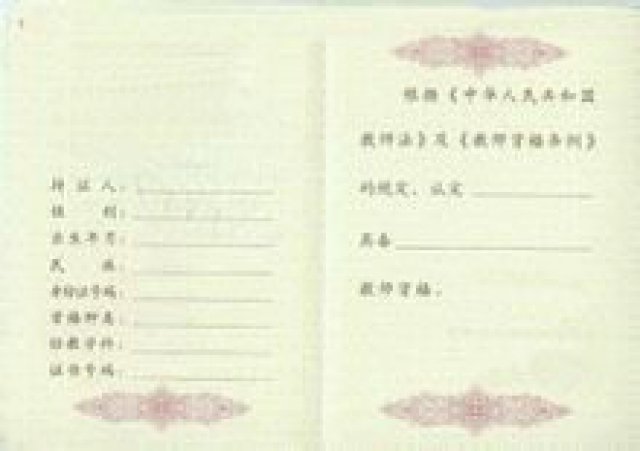 持证人：
性别：
出生年月：
民族：
身份证号码：
资格种类：
任教学科：
证书号码：
根据《中华人民共和国
教师法》及《教师资格条例》
的规定，认定
具备
教师资格。